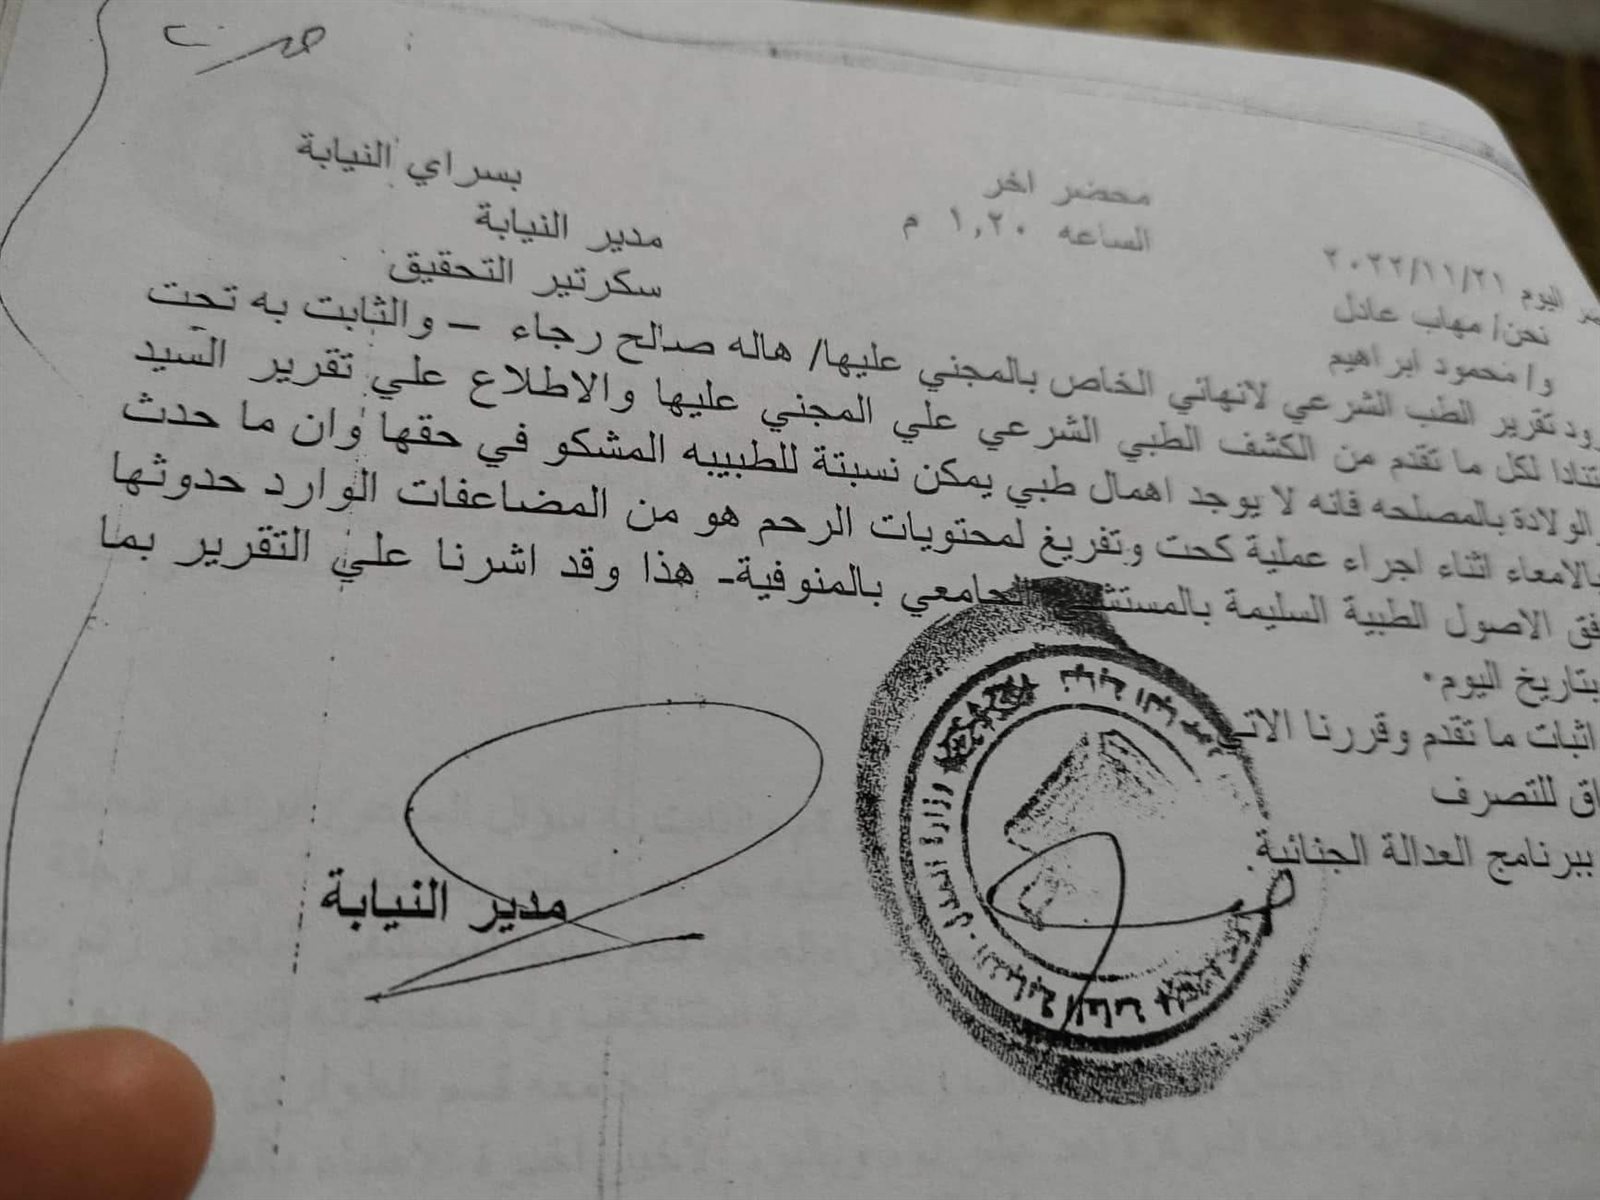 محضر اخر
بسراي النيابة
اليوم ٢٠٢٢/١١/٢١ الساعه ١,٢٠ م
نحن/ مهاب عادل مدير النيابة
و/ محمود ابراهيم سكرتير التحقيق
تقرير الطب الشرعي لانهائي الخاص بالمجني عليها/ هاله صالح رجاء – والثابت به تحت
لكل ما تقدم من الكشف الطبي الشرعي علي المجني عليها والاطلاع علي تقرير السيد
الولادة بالمصلحه فانه لا يوجد اهمال طبي يمكن نسبتة للطبيبه المشكو في حقها وان ما حدث
بالامعاء اثناء اجراء عملية كحت وتفريغ لمحتويات الرحم هو من المضاعفات الوارد حدوثها
الاصول الطبية السليمة بالمستشفي الجامعي بالمنوفية- هذا وقد اشرنا علي التقرير بما
بتاريخ اليوم.
اثبات ما تقدم وقررنا الاتي
للتصرف
ببرنامج العدالة الجنائية.
مدير النيابة
وزارة العدل - النيابة العامة